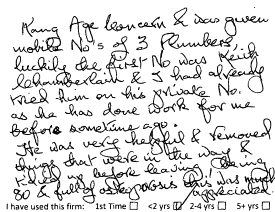 Rang Age Concern & was given
mobile No's of 3 Plumbers,
luckily the first No was Keith
Chamberlain & I had already
tried him on his private No.
as he has done work for me
before sometime ago.
He was very helpful & removed
things that were in the way &
before leaving. Being
80 & full of osteoporosis this was much
appreciated.
I have used this firm: 1st Time <2 yrs 2-4 yrs 5+ yrs